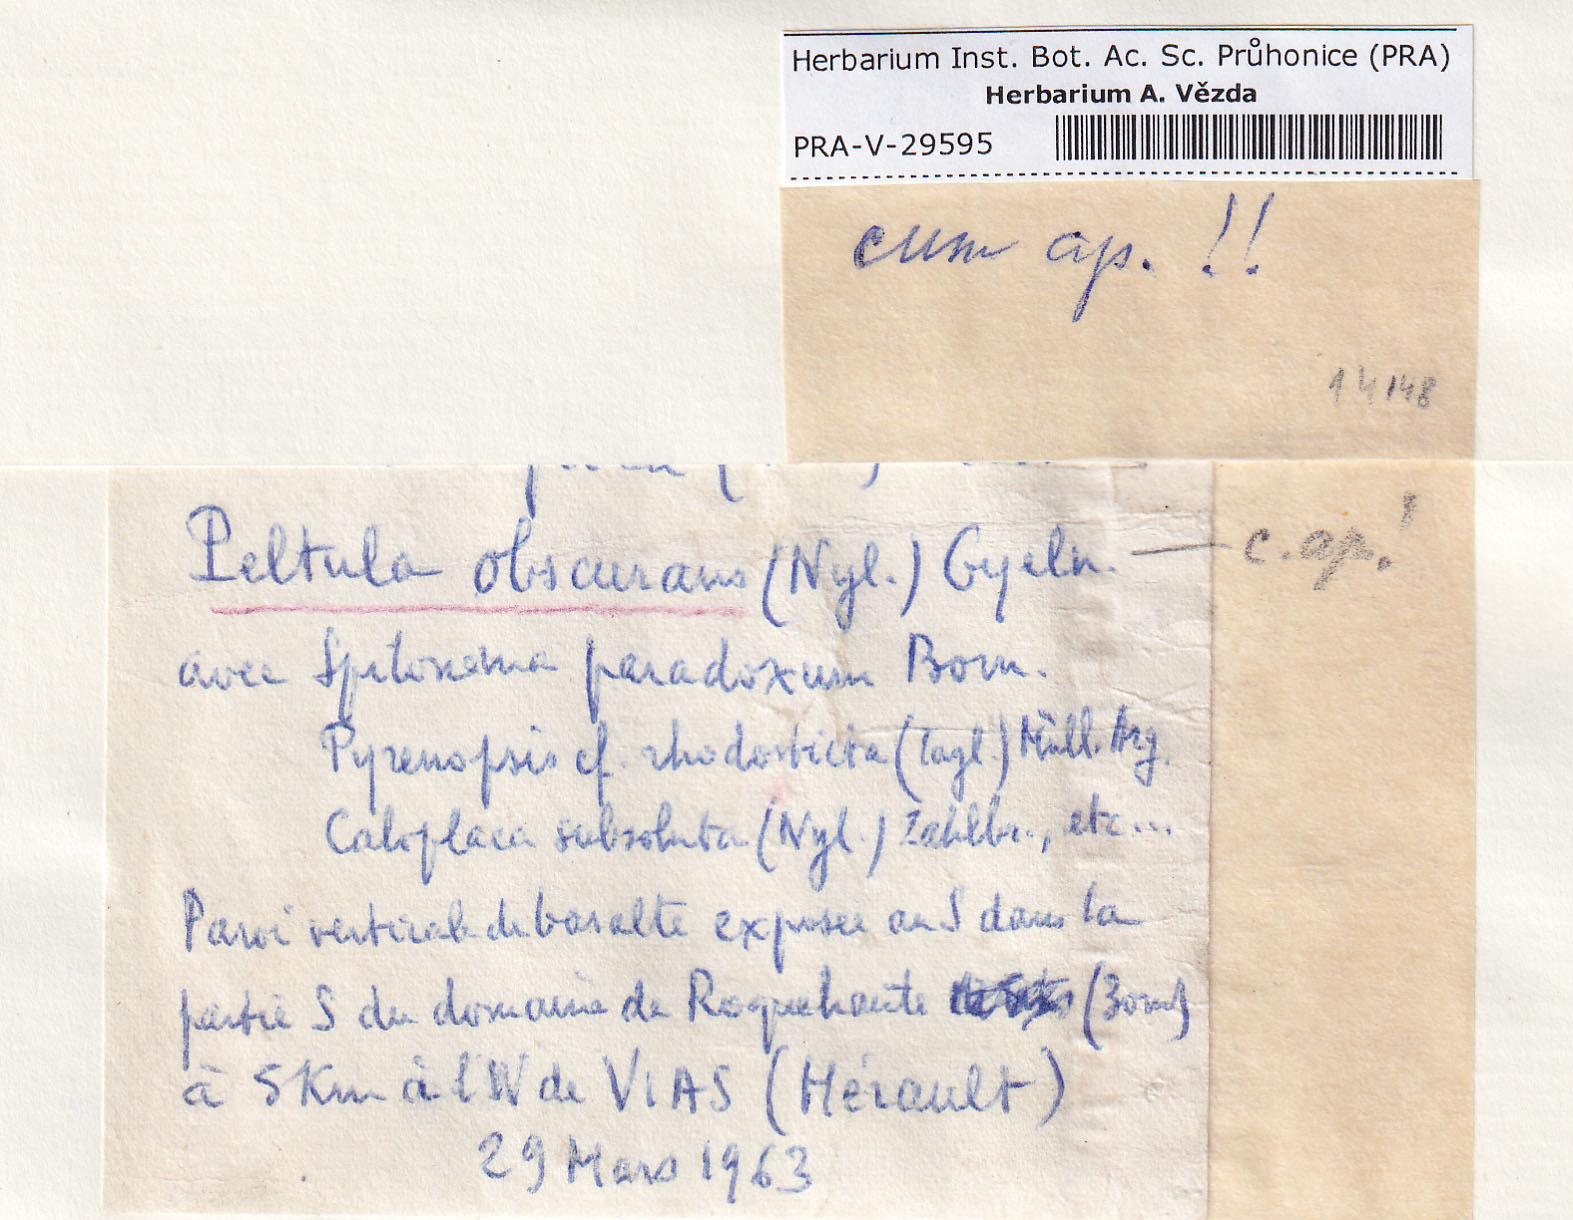 Herbarium Inst. Bot. Ac. Sc. Průhonice (PRA)
Herbarium A. Vězda
PRA-V-29595
cum ap. !!
14148
Peltula obscurans (Nyl.) Gyeln. — c. ap.!
avec Spilonema paradoxum Born.
Pyrenopsis cf. rhodosticta (Tayl.) Müll. Arg.
Caloplaca subsoluta (Nyl.) Zahlbr., etc...
Paroi verticale de basalte exposée au S dans la
partie S du domaine de Roquehaute (30m)
à 5 Km à l'W de VIAS (Hérault)
29 Mars 1963